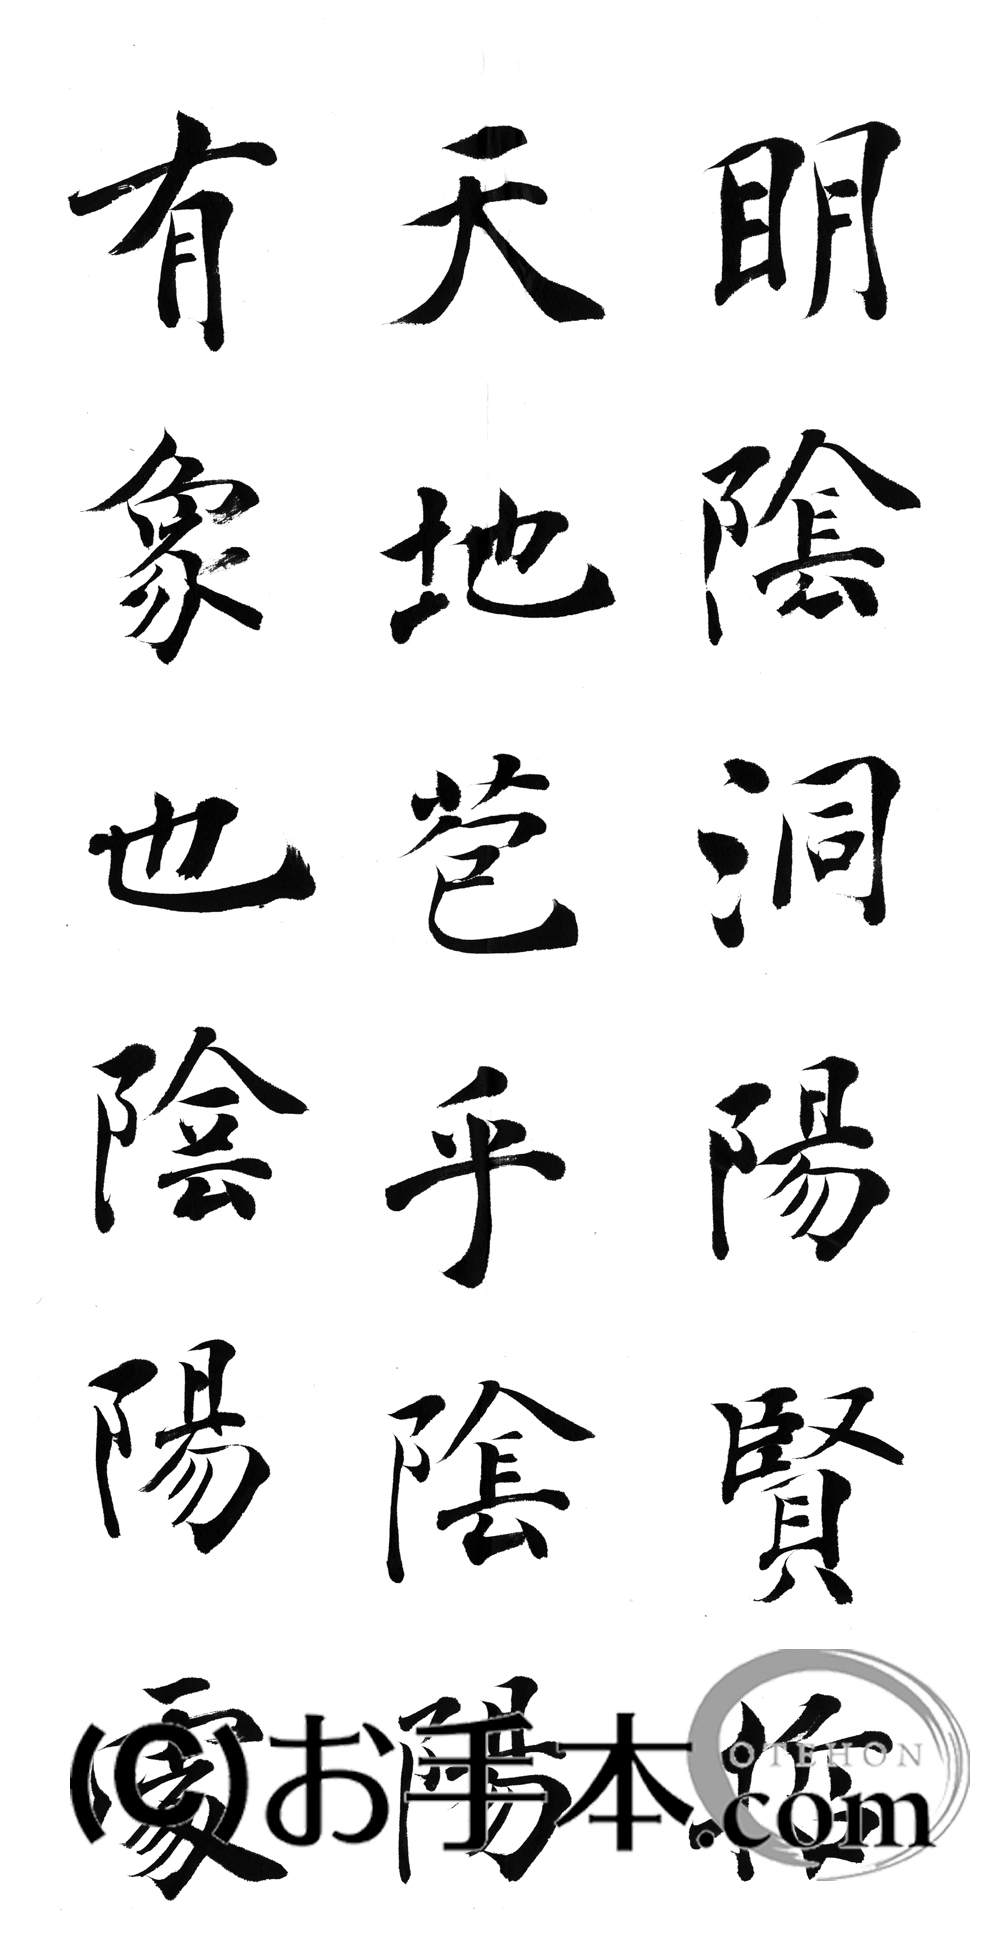 明陰洞陽賢哲
天地苞乎陰陽
有象也陰陽處
(C)お手本.com
OTEHON